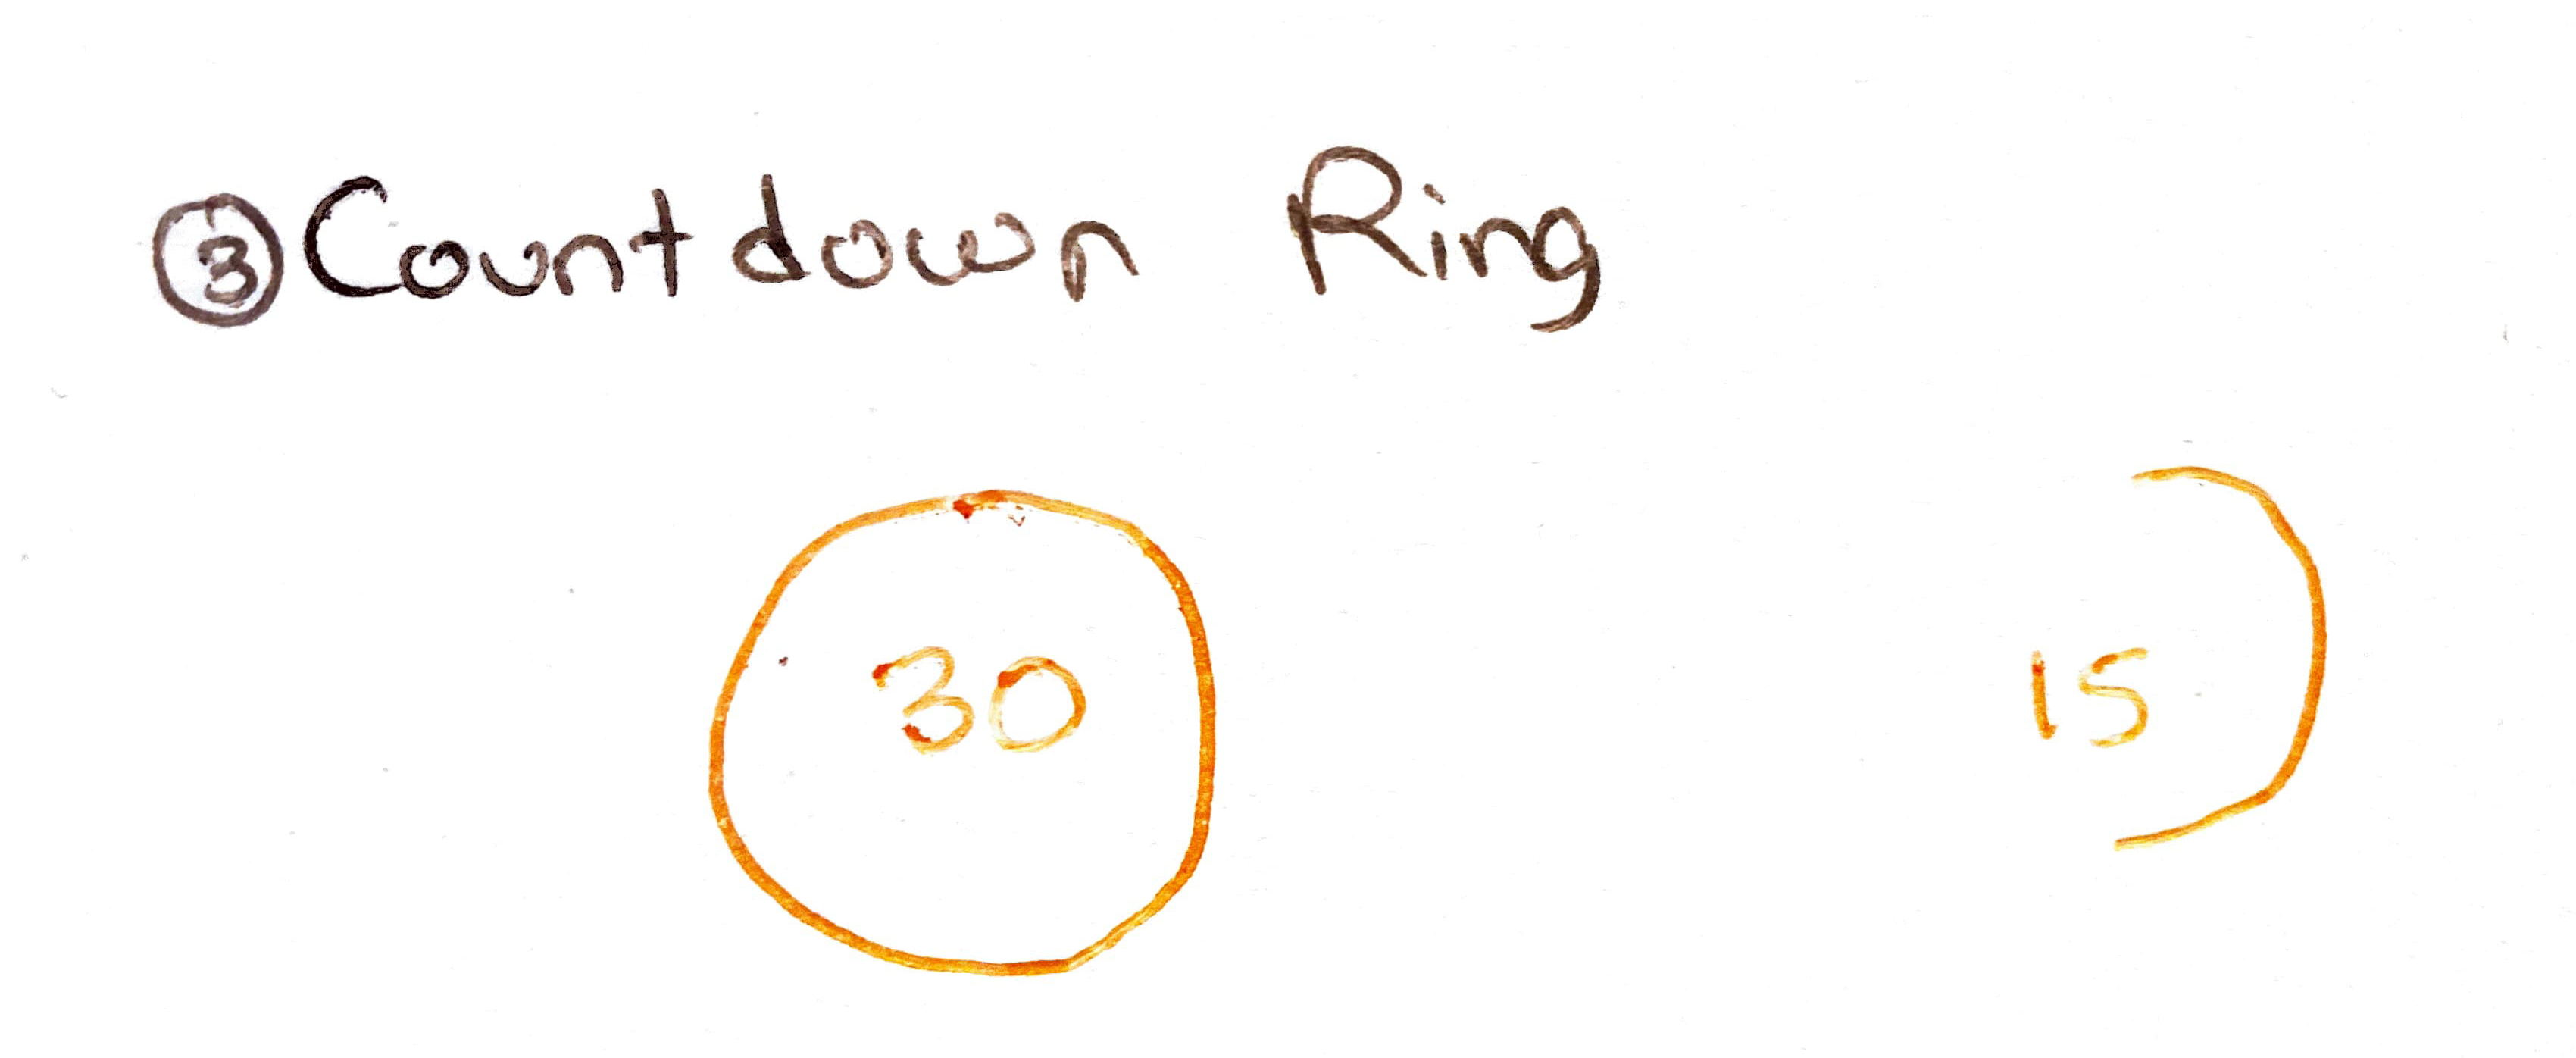 ③ Countdown Ring
30 15